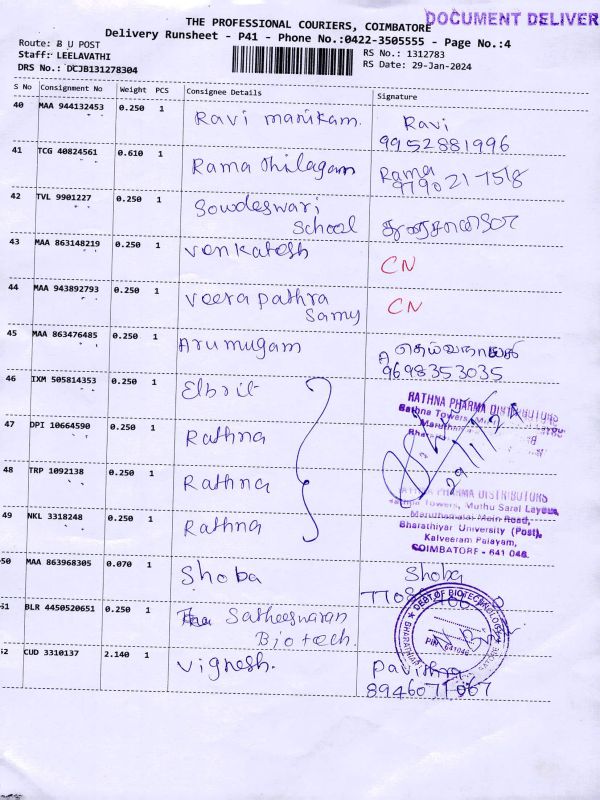 DOCUMENT DELIVER
THE PROFESSIONAL COURIERS, COIMBATORE
Delivery Runsheet - P41 - Phone No.:0422-3505555 - Page No.:4
Route: B U POST
Staff: LEELAVATHI
DRS No.: DCJB131278304
RS No.: 1312783
RS Date: 29-Jan-2024
S No Consignment No Weight PCS Consignee Details Signature
40 MAA 944132453 0.250 1 Ravi manikam Ravi
9952881996
41 TCG 40824561 0.610 1 Rama thilagam Rama
42 TVL 9901227 0.250 1 Sowdeswari
School
43 MAA 863148219 0.250 1 Venkatesh CN
44 MAA 943892793 0.250 1 Veera pathra
Samy CN
45 MAA 863476485 0.250 1 Arumugam
9698353035
46 IXM 505814353 0.250 1 Elbrit
47 DPI 10664590 0.250 1 Rathna
48 TRP 1092138 0.250 1 Rathna
49 NKL 3318248 0.250 1 Rathna
RATHNA PHARMA DISTRIBUTORS
Rathna Towers,
29/1/24
PHARMA DISTRIBUTORS
Towers, Muthu Saral Layout,
Maruthamalai Main Road,
Bharathiyar University (Post),
Kalveeram Palayam,
COIMBATORE - 641 046.
50 MAA 863968305 0.070 1 Shoba Shoba
51 BLR 4450520651 0.250 1 Satheeswaran
Biotech
DEPT OF BIOTECHNOLOGY
PIN 641046
52 CUD 3310137 2.140 1 Vignesh. Pavithra
8946071067